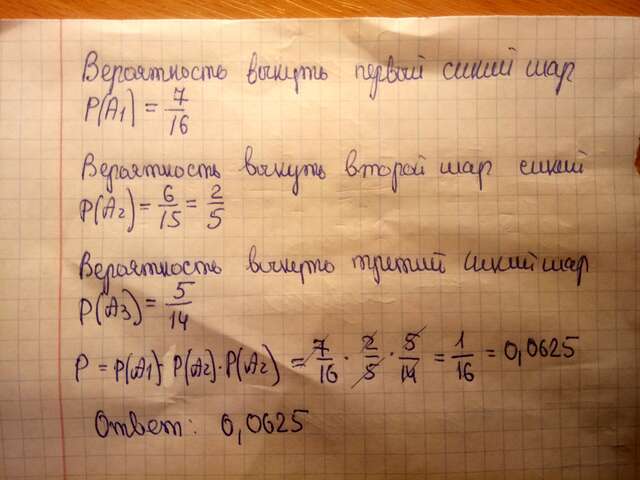 Вероятность вынуть первый синий шар
P(A1) = 7/16
Вероятность вынуть второй шар синий
P(A2) = 6/15 = 2/5
Вероятность вынуть третий синий шар
P(A3) = 5/14
P = P(A1) · P(A2) · P(A2) = 7/16 · 2/5 · 5/14 = 1/16 = 0,0625
Ответ: 0,0625